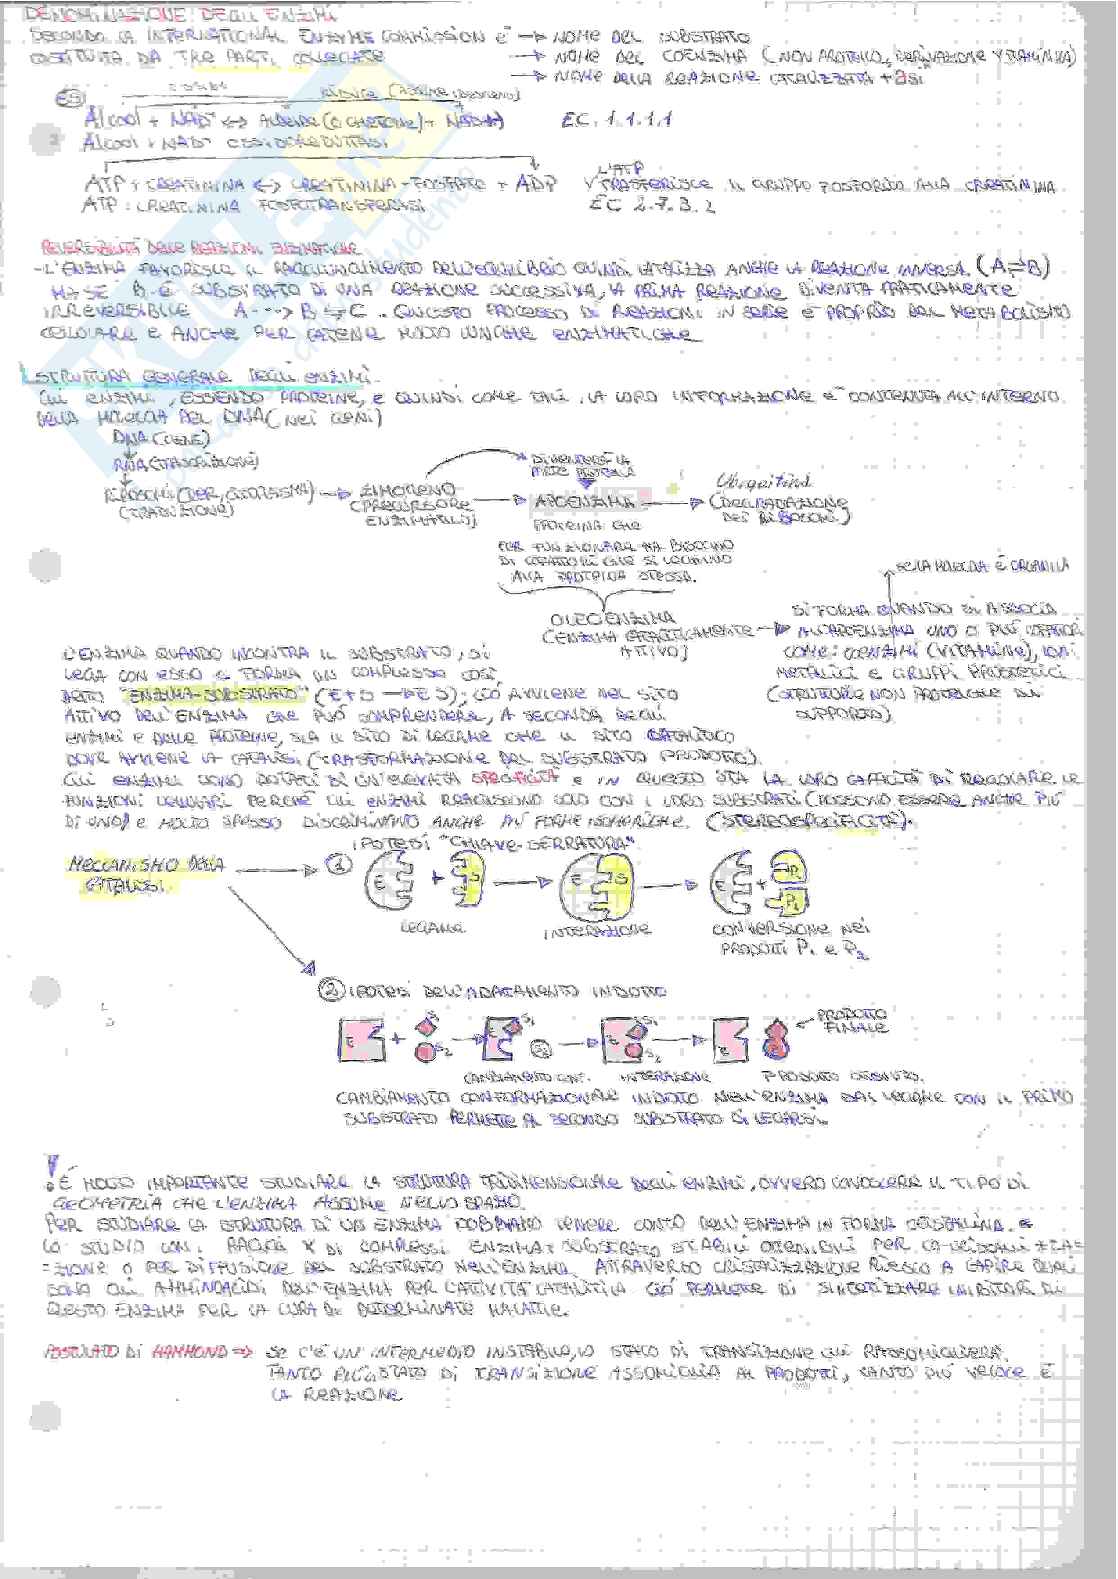 DENOMINAZIONE DEGLI ENZIMI
SECONDO LA INTERNATIONAL ENZYME COMMISSION È → NOME DEL SUBSTRATO
COSTITUITA DA TRE PARTI COLLEGATE → NOME DEL COENZIMA (NON PROTEICO, DERIVAZIONE VITAMINICA)
→ NOME DELLA REAZIONE CATALIZZATA + asi
ES
Alcool + NAD+ ↔ ALDEIDE (O CHETONE) + NADH EC. 1.1.1.1
Alcool : NAD+ OSSIDOREDUTTASI
ATP + CREATININA ↔ CREATININA-FOSFATO + ADP L'ATP TRASFERISCE IL GRUPPO FOSFORICO ALLA CREATININA
ATP : CREATININA FOSFOTRANSFERASI EC 2.7.3.2
REVERSIBILITÀ DELLE REAZIONI ENZIMATICHE
- L'ENZIMA FAVORISCE IL RAGGIUNGIMENTO DELL'EQUILIBRIO QUINDI CATALIZZA ANCHE LA REAZIONE INVERSA. (A⇌B)
MA SE B È SUBSTRATO DI UNA REAZIONE SUCCESSIVA, LA PRIMA REAZIONE DIVENTA PRATICAMENTE
IRREVERSIBILE A ---> B ⇆ C. QUESTO PROCESSO DI REAZIONI IN SERIE È PROPRIO DEL METABOLISMO
CELLULARE E ANCHE PER CATENE MOLTO LUNGHE ENZIMATICHE
STRUTTURA GENERALE DEGLI ENZIMI.
GLI ENZIMI, ESSENDO PROTEINE, E QUINDI COME TALI, LA LORO INFORMAZIONE È CONTENUTA ALL'INTERNO
DELLA MOLECOLA DEL DNA (NEI GENI)
DNA (GENE)
RNA (TRASCRIZIONE)
RIBOSOMI (RER, CITOPLASMA) → ZIMOGENO → APOENZIMA → Ubiquitina
(TRADUZIONE) (PRECURSORE ENZIMATICO)
DIVENTERÀ LA PARTE PROTEICA
(DEGRADAZIONE DEI RIBOSOMI)
PROTEINA CHE
PER FUNZIONARE HA BISOGNO
DI COFATTORI CHE SI LEGHINO
ALLA PROTEINA STESSA.
SE LA MOLECOLA È ORGANICA
OLOENZIMA
(ENZIMA CATALITICAMENTE ATTIVO)
SI FORMA QUANDO SI ASSOCIA
ALL'APOENZIMA UNO O PIÙ COFATTORI
COME: COENZIMI (VITAMINE), IONI
METALLICI E GRUPPI PROSTETICI
(STRUTTURE NON PROTEICHE DI
SUPPORTO)
L'ENZIMA QUANDO INCONTRA IL SUBSTRATO, SI
LEGA CON ESSO E FORMA UN COMPLESSO COSÌ
DETTO "ENZIMA-SUBSTRATO" (E+S → ES); CIÒ AVVIENE NEL SITO
ATTIVO DELL'ENZIMA CHE PUÒ COMPRENDERE, A SECONDA DEGLI
ENZIMI E DELLE PROTEINE, SIA IL SITO DI LEGAME CHE IL SITO CATALITICO
DOVE AVVIENE LA CATALISI (TRASFORMAZIONE DEL SUBSTRATO PRODOTTO).
GLI ENZIMI SONO DOTATI DI UN'ELEVATA SPECIFICITÀ E IN QUESTO STA LA LORO CAPACITÀ DI REGOLARE LE
FUNZIONI CELLULARI PERCHÉ GLI ENZIMI REAGISCONO SOLO CON I LORO SUBSTRATI (POSSONO ESSERE ANCHE PIÙ
DI UNO) E MOLTO SPESSO DISCRIMINANO ANCHE PIÙ FORME ISOMERICHE. (STEREOSPECIFICITÀ).
IPOTESI "CHIAVE-SERRATURA"
MECCANISMO DELLA CATALISI.
1
E + S → E S → E + P P1
LEGAME INTERAZIONE CONVERSIONE NEI
PRODOTTI P1 E P2
2 IPOTESI DELL'ADATTAMENTO INDOTTO
E + S1 S2 → E S1 S2 → E S1 S2 → E P
PRODOTTO FINALE
CAMBIAMENTO CONF. INTERAZIONE PRODOTTO OTTENUTO.
CAMBIAMENTO CONFORMAZIONALE INDOTTO NELL'ENZIMA DAL LEGAME CON IL PRIMO
SUBSTRATO PERMETTE AL SECONDO SUBSTRATO DI LEGARSI.
! È MOLTO IMPORTANTE STUDIARE LA STRUTTURA TRIDIMENSIONALE DEGLI ENZIMI, OVVERO CONOSCERE IL TIPO DI
GEOMETRIA CHE L'ENZIMA ASSUME NELLO SPAZIO.
PER STUDIARE LA STRUTTURA DI UN ENZIMA DOBBIAMO TENERE CONTO DELL'ENZIMA IN FORMA CRISTALLINA.
LO STUDIO CON I RAGGI X DI COMPLESSI ENZIMA-SUBSTRATO STABILI OTTENIBILI PER CO-CRISTALLIZZA-
ZIONE O PER DIFFUSIONE DEL SUBSTRATO NELL'ENZIMA. ATTRAVERSO CRISTALIZZAZIONE RIESCO A CAPIRE QUALI
SONO GLI AMMINOACIDI DELL'ENZIMA PER L'ATTIVITÀ CATALITICA CIÒ PERMETTE DI SINTETIZZARE INIBITORI DI
QUESTO ENZIMA PER LA CURA DI DETERMINATE MALATTIE.
POSTULATO DI HAMMOND ⇒ SE C'È UN INTERMEDIO INSTABILE, LO STATO DI TRANSIZIONE GLI RASSOMIGLIERÀ.
TANTO PIÙ LO STATO DI TRANSIZIONE ASSOMIGLIA AI PRODOTTI, TANTO PIÙ VELOCE È
LA REAZIONE